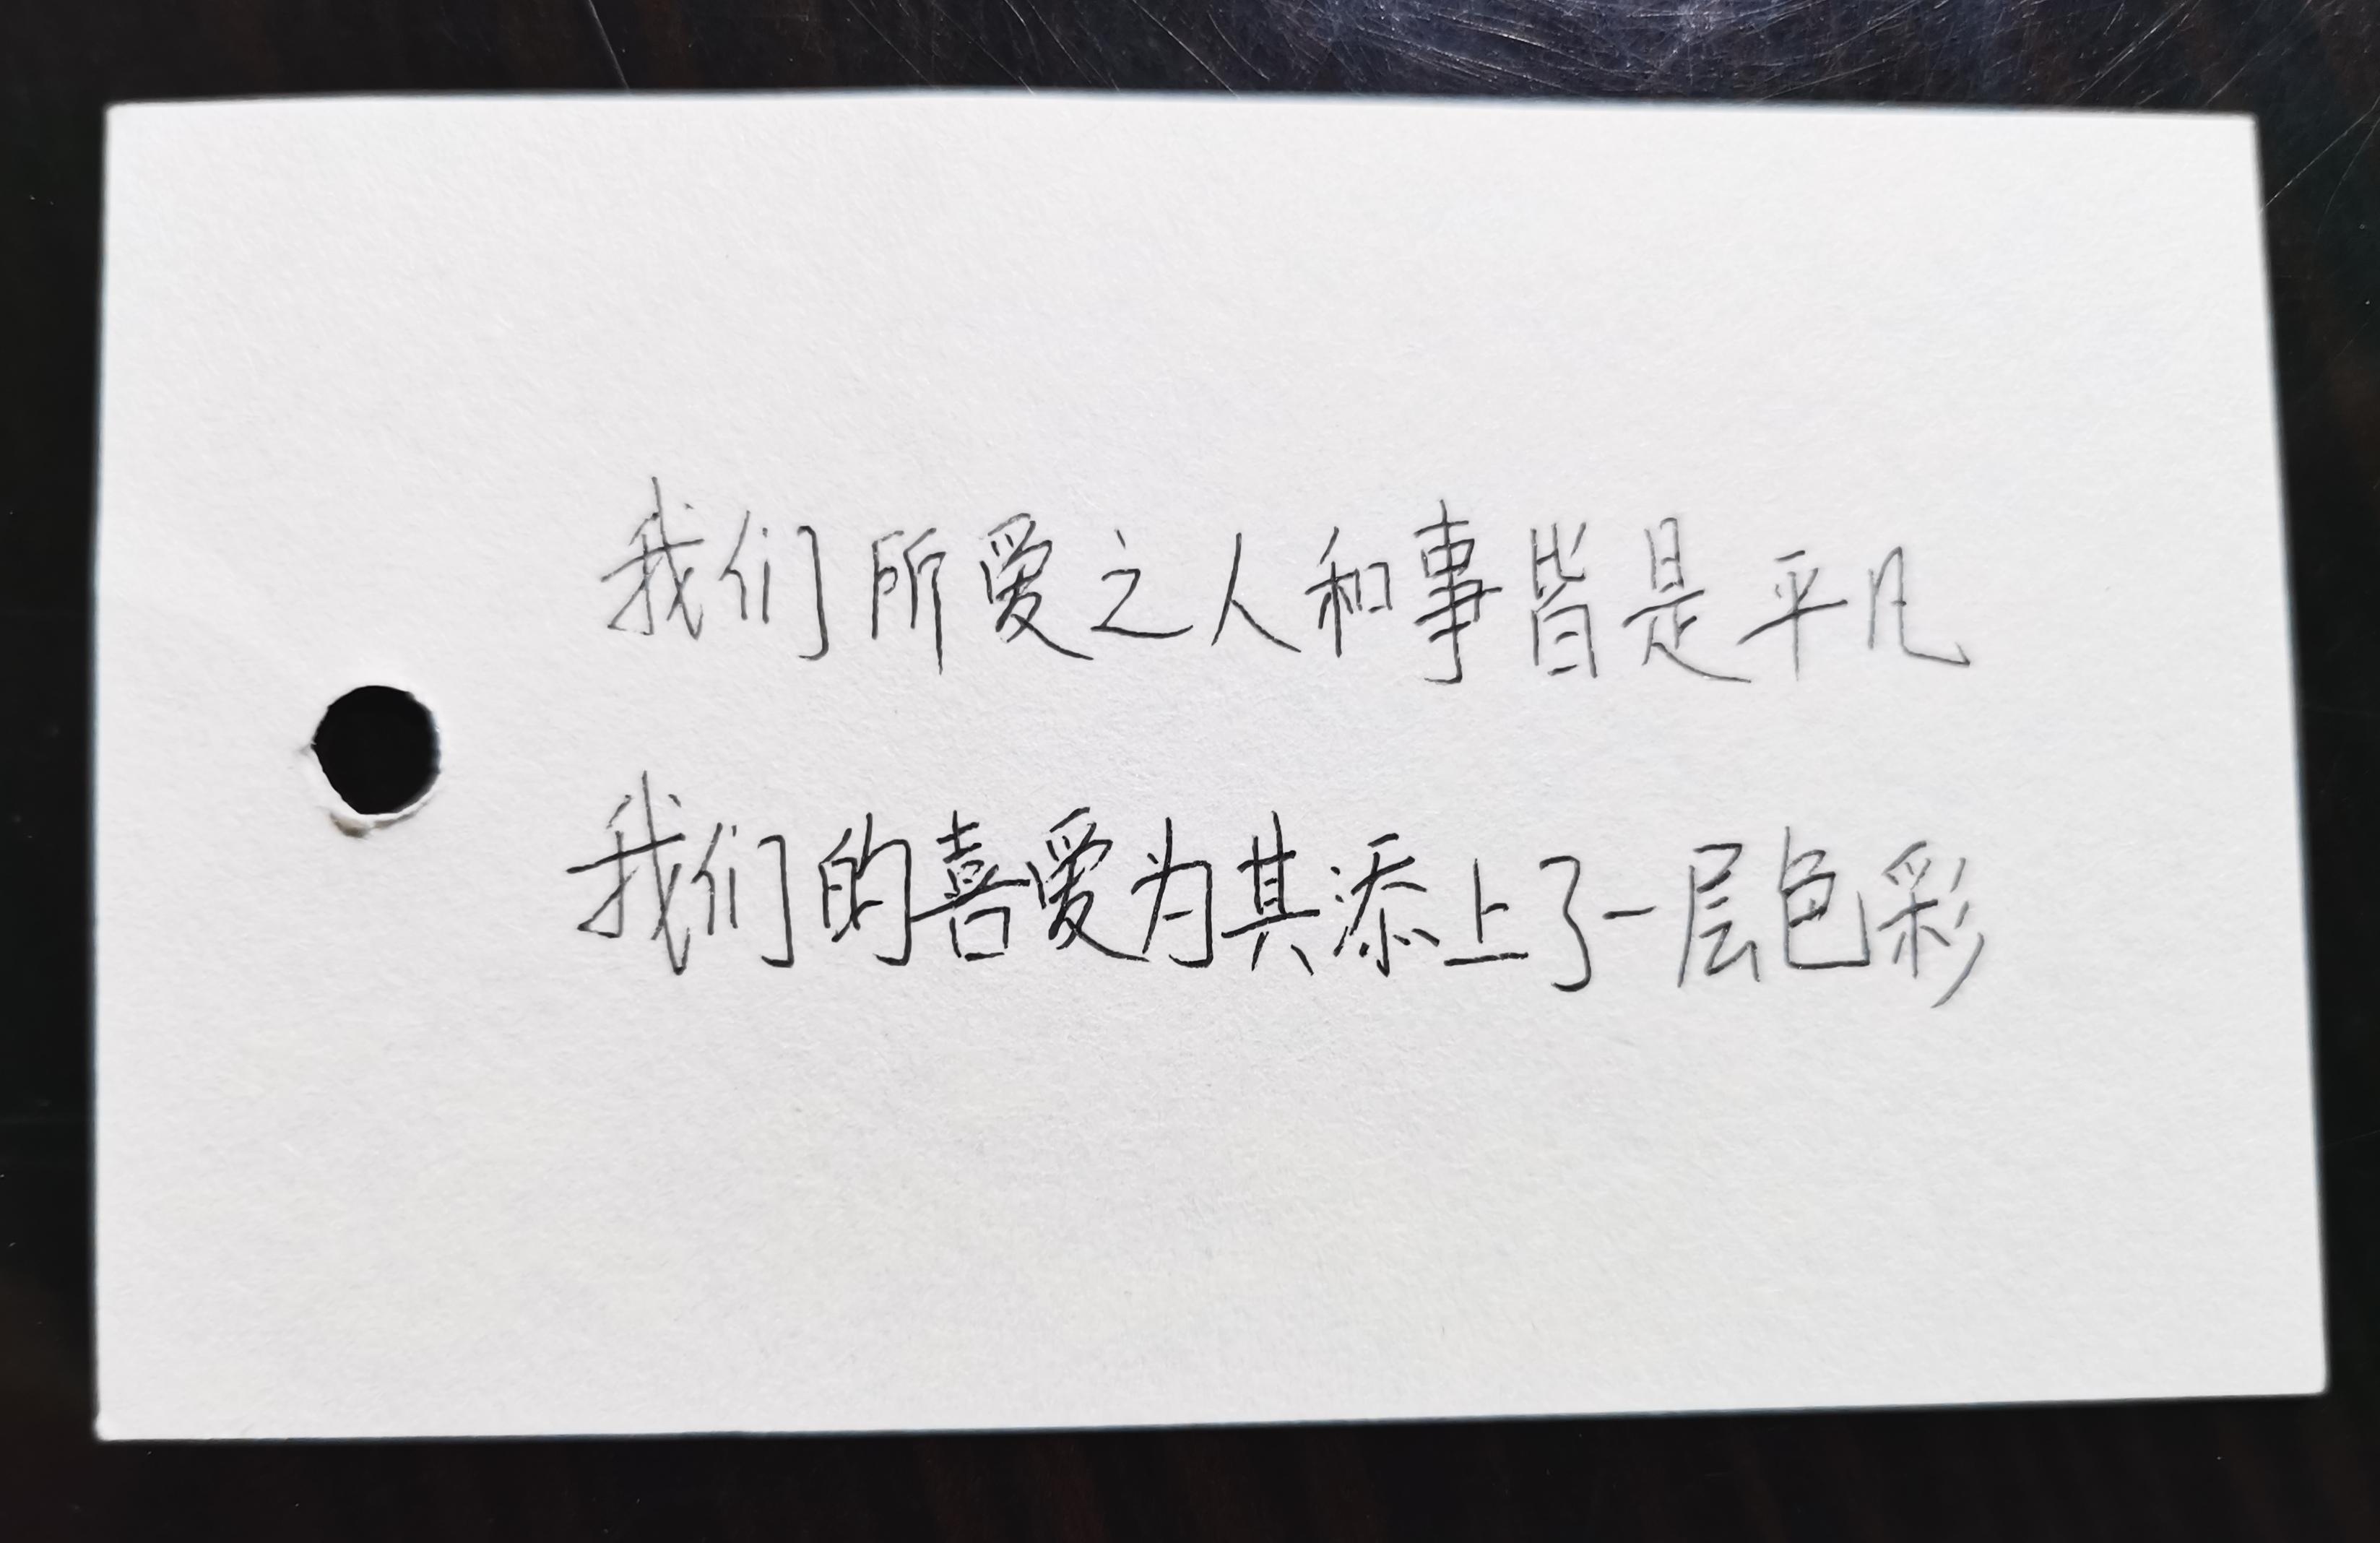 我们所爱之人和事皆是平凡
我们的喜爱为其添上了一层色彩